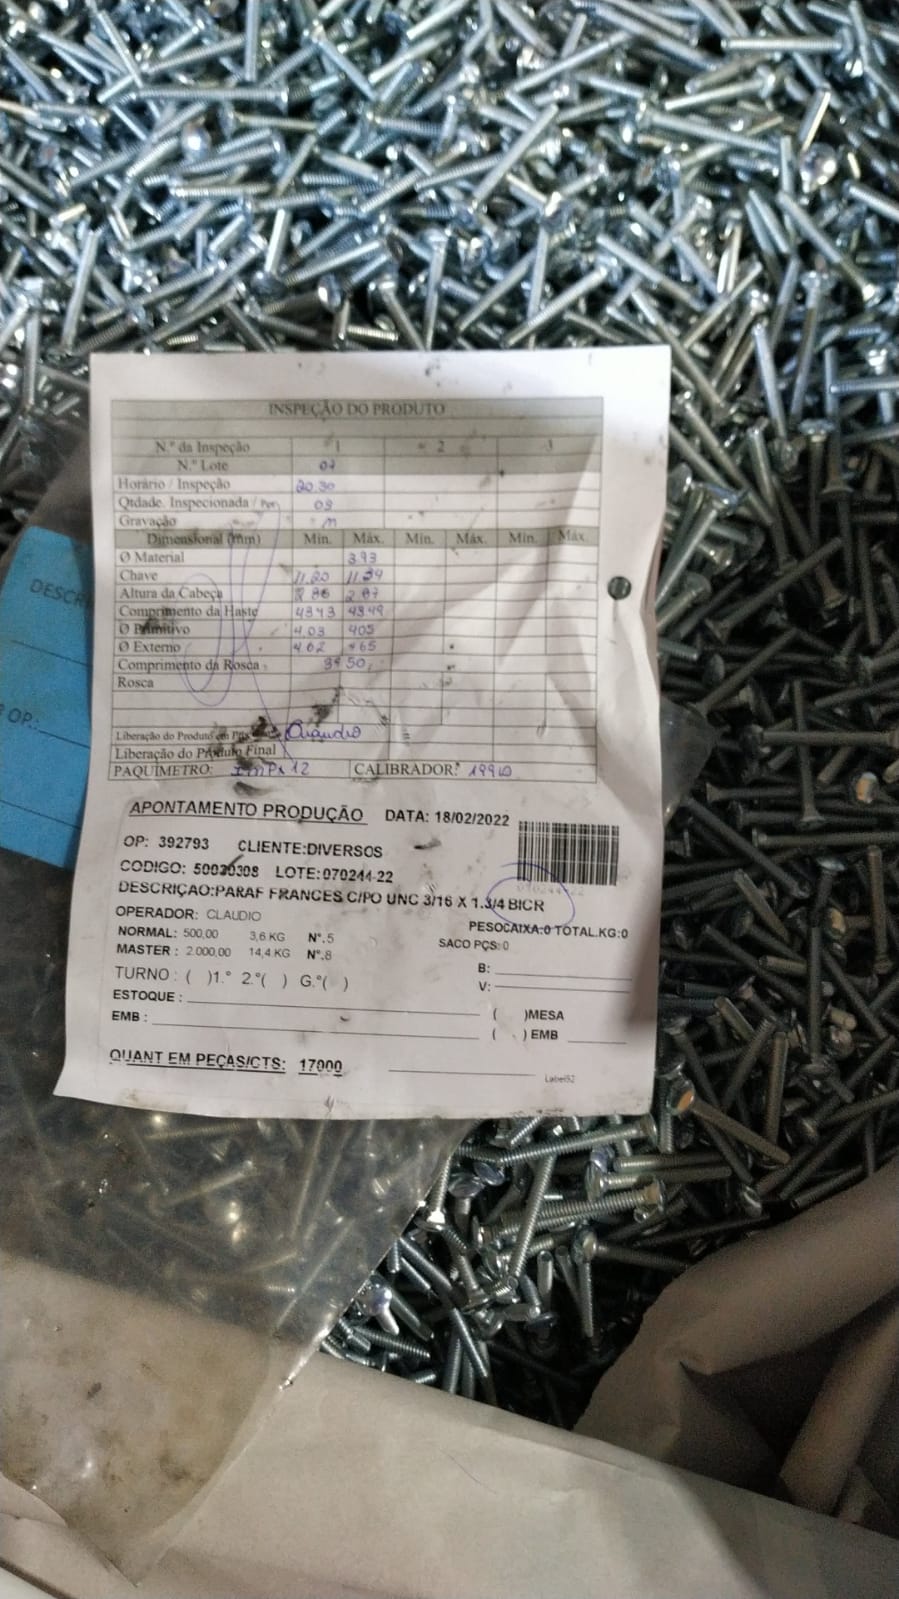 INSPEÇÃO DO PRODUTO
N.º da Inspeção 1 2 3
N.º Lote 07
Horário / Inspeção 20.30
Qtdade. Inspecionada / 03
Gravação
Dimensional (mm) Min. Máx. Min. Máx. Min. Máx.
Ø Material 3.93
Chave 11.20 11.34
Altura da Cabeça 2.86 2.87
Comprimento da Haste 43.43 43.49
Ø Primitivo 4.03 405
Ø Externo 4.62 465
Comprimento da Rosca 50
Rosca
Liberação do Produto em Claudio
Liberação do Produto Final
PAQUIMETRO: 12 CALIBRADOR:
APONTAMENTO PRODUÇÃO DATA: 18/02/2022
OP: 392793 CLIENTE:DIVERSOS
CODIGO: 50030308 LOTE:070244-22
070244-22
DESCRIÇAO:PARAF FRANCES C/PO UNC 3/16 X 1.3/4 BICR
OPERADOR: CLAUDIO
PESOCAIXA:0 TOTAL.KG:0
NORMAL: 500,00 3,6 KG Nº.5
SACO PÇS:0
MASTER : 2.000,00 14,4 KG Nº.8
TURNO : ( )1.º 2.º( ) G.º( )
B:
V:
ESTOQUE :
( )MESA
EMB :
( ) EMB
QUANT EM PEÇAS/CTS: 17000
Label52
DESCR
OP: